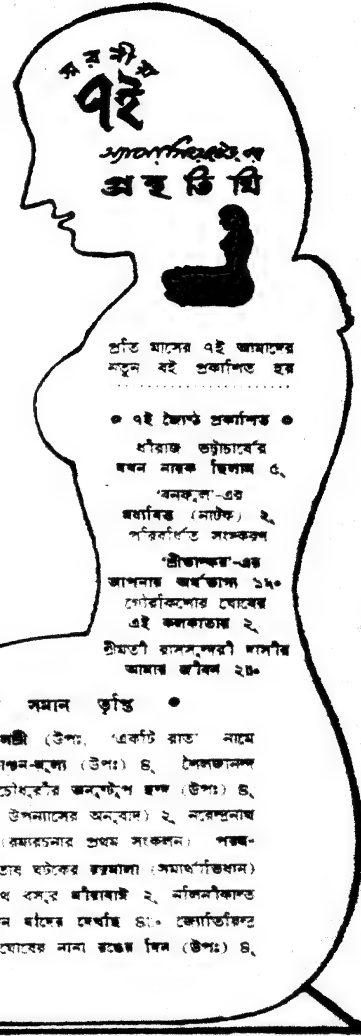 স্মরণীয়
৭ই
অ্যাসোসিয়েটেড-এর
গ্রন্থতিথি
প্রতি মাসের ৭ই আমাদের
নতুন বই প্রকাশিত হয়
৭ই জ্যৈষ্ঠ প্রকাশিত
ধীরাজ ভট্টাচার্যের
যখন নায়ক ছিলাম ৫৲
'বনফুল'-এর
মধ্যবিত্ত (নাটক) ২৲
পরিবর্ধিত সংস্করণ
'শ্রীভাস্কর'-এর
আপনার অর্থভাগ্য ১৸০
গৌরকিশোর ঘোষের
এই কলকাতায় ২৲
শ্রীমতী রাসসুন্দরী দাসীর
আমার জীবন ২॥০
সমান তৃপ্তি
(উপঃ, 'একটি রাত' নামে
-মূল্য (উপঃ) ৪৲ শৈলজানন্দ
চৌধুরীর অনুষ্টুপ ছন্দ (উপঃ) ৪৲
উপন্যাসের অনুবাদ) ২৲ নরেন্দ্রনাথ
(রম্যরচনার প্রথম সংকলন) পরশু-
ঘটকের রত্নমালা (সমার্থাভিধান)
বসুর মীরাবাঈ ২৲ নলিনীকান্ত
যাঁদের দেখেছি ৪৲ জ্যোতিরিন্দ্র
ঘোষের নানা রঙের দিন (উপঃ) ৪৲